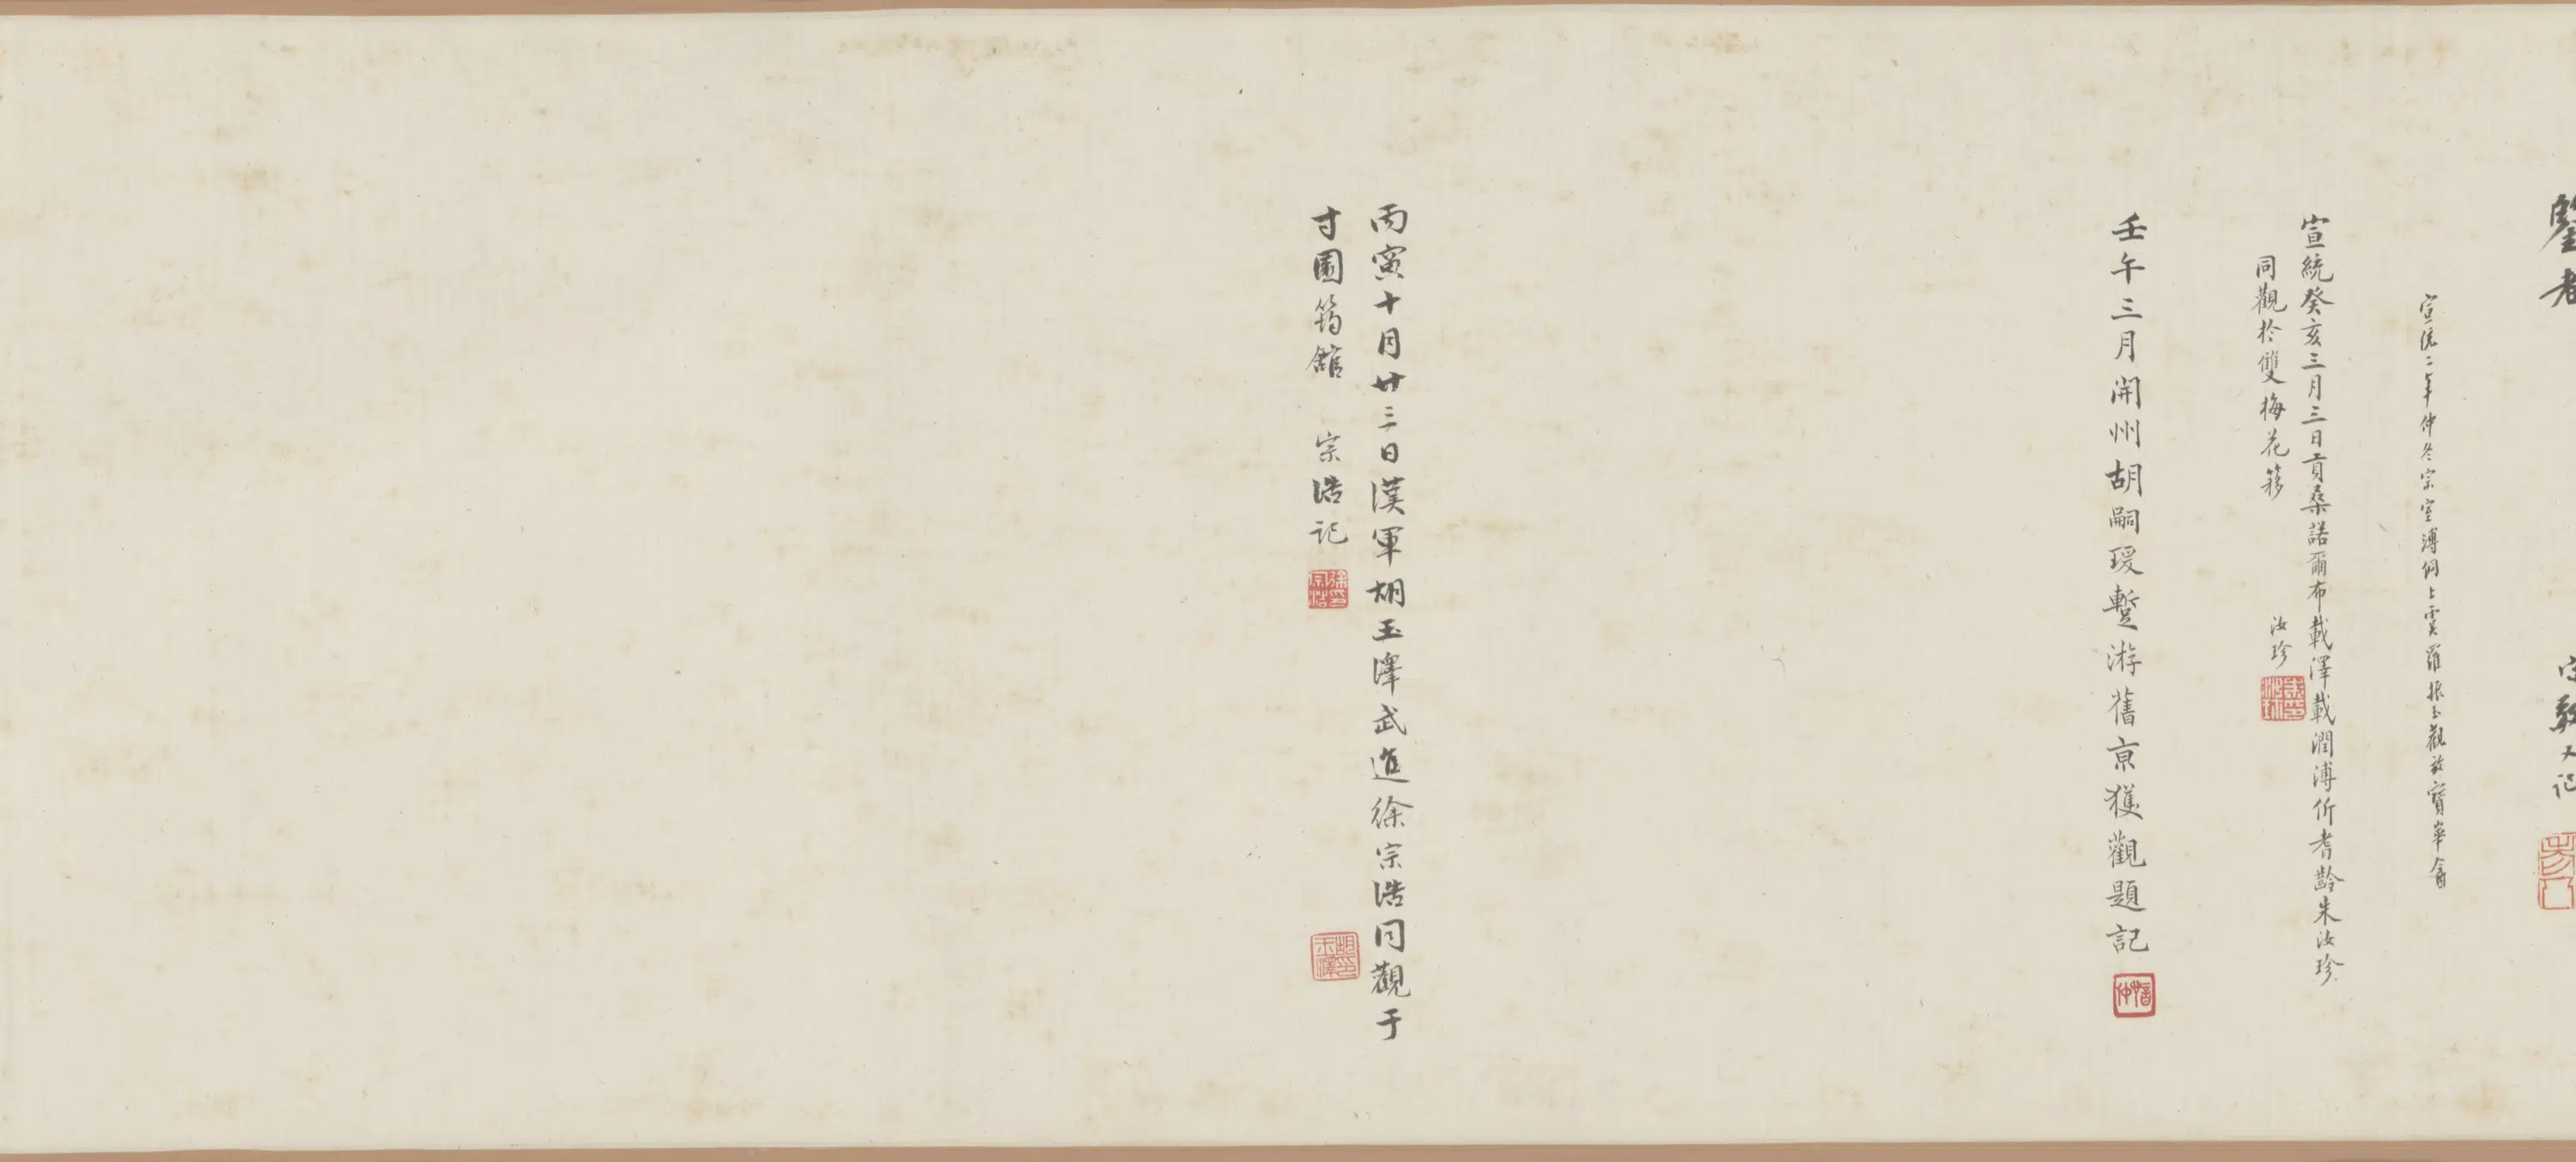 鑒者
宗敬又記
宣統二年仲冬宗室溥侗上虞羅振玉觀於寶華盦
宣統癸亥三月三日貢桑諾爾布載澤載潤溥伒耆齡朱汝珍
同觀於雙梅花簃 汝珍
壬午三月開州胡嗣瑗蹔游舊京獲觀題記
丙寅十月廿三日漢軍胡玉澤武進徐宗浩同觀于
寸園筠館 宗浩記
徐宗浩印
胡玉澤印